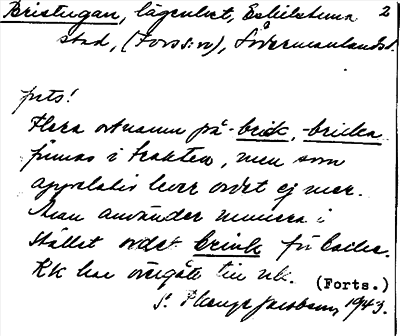 Bristugan, lägenhet, Eskilstuna 2
stad, (Fors s:n), Södermanlands l.
forts!
Flera ortnamn på -brick, -bricka
finnas i trakten, men som
appellativ lever ordet ej mer.
Man använder numera i
stället ordet brink för backe.
KK har övergått till nk. (Forts.)
S. Jacobsson, 1943.